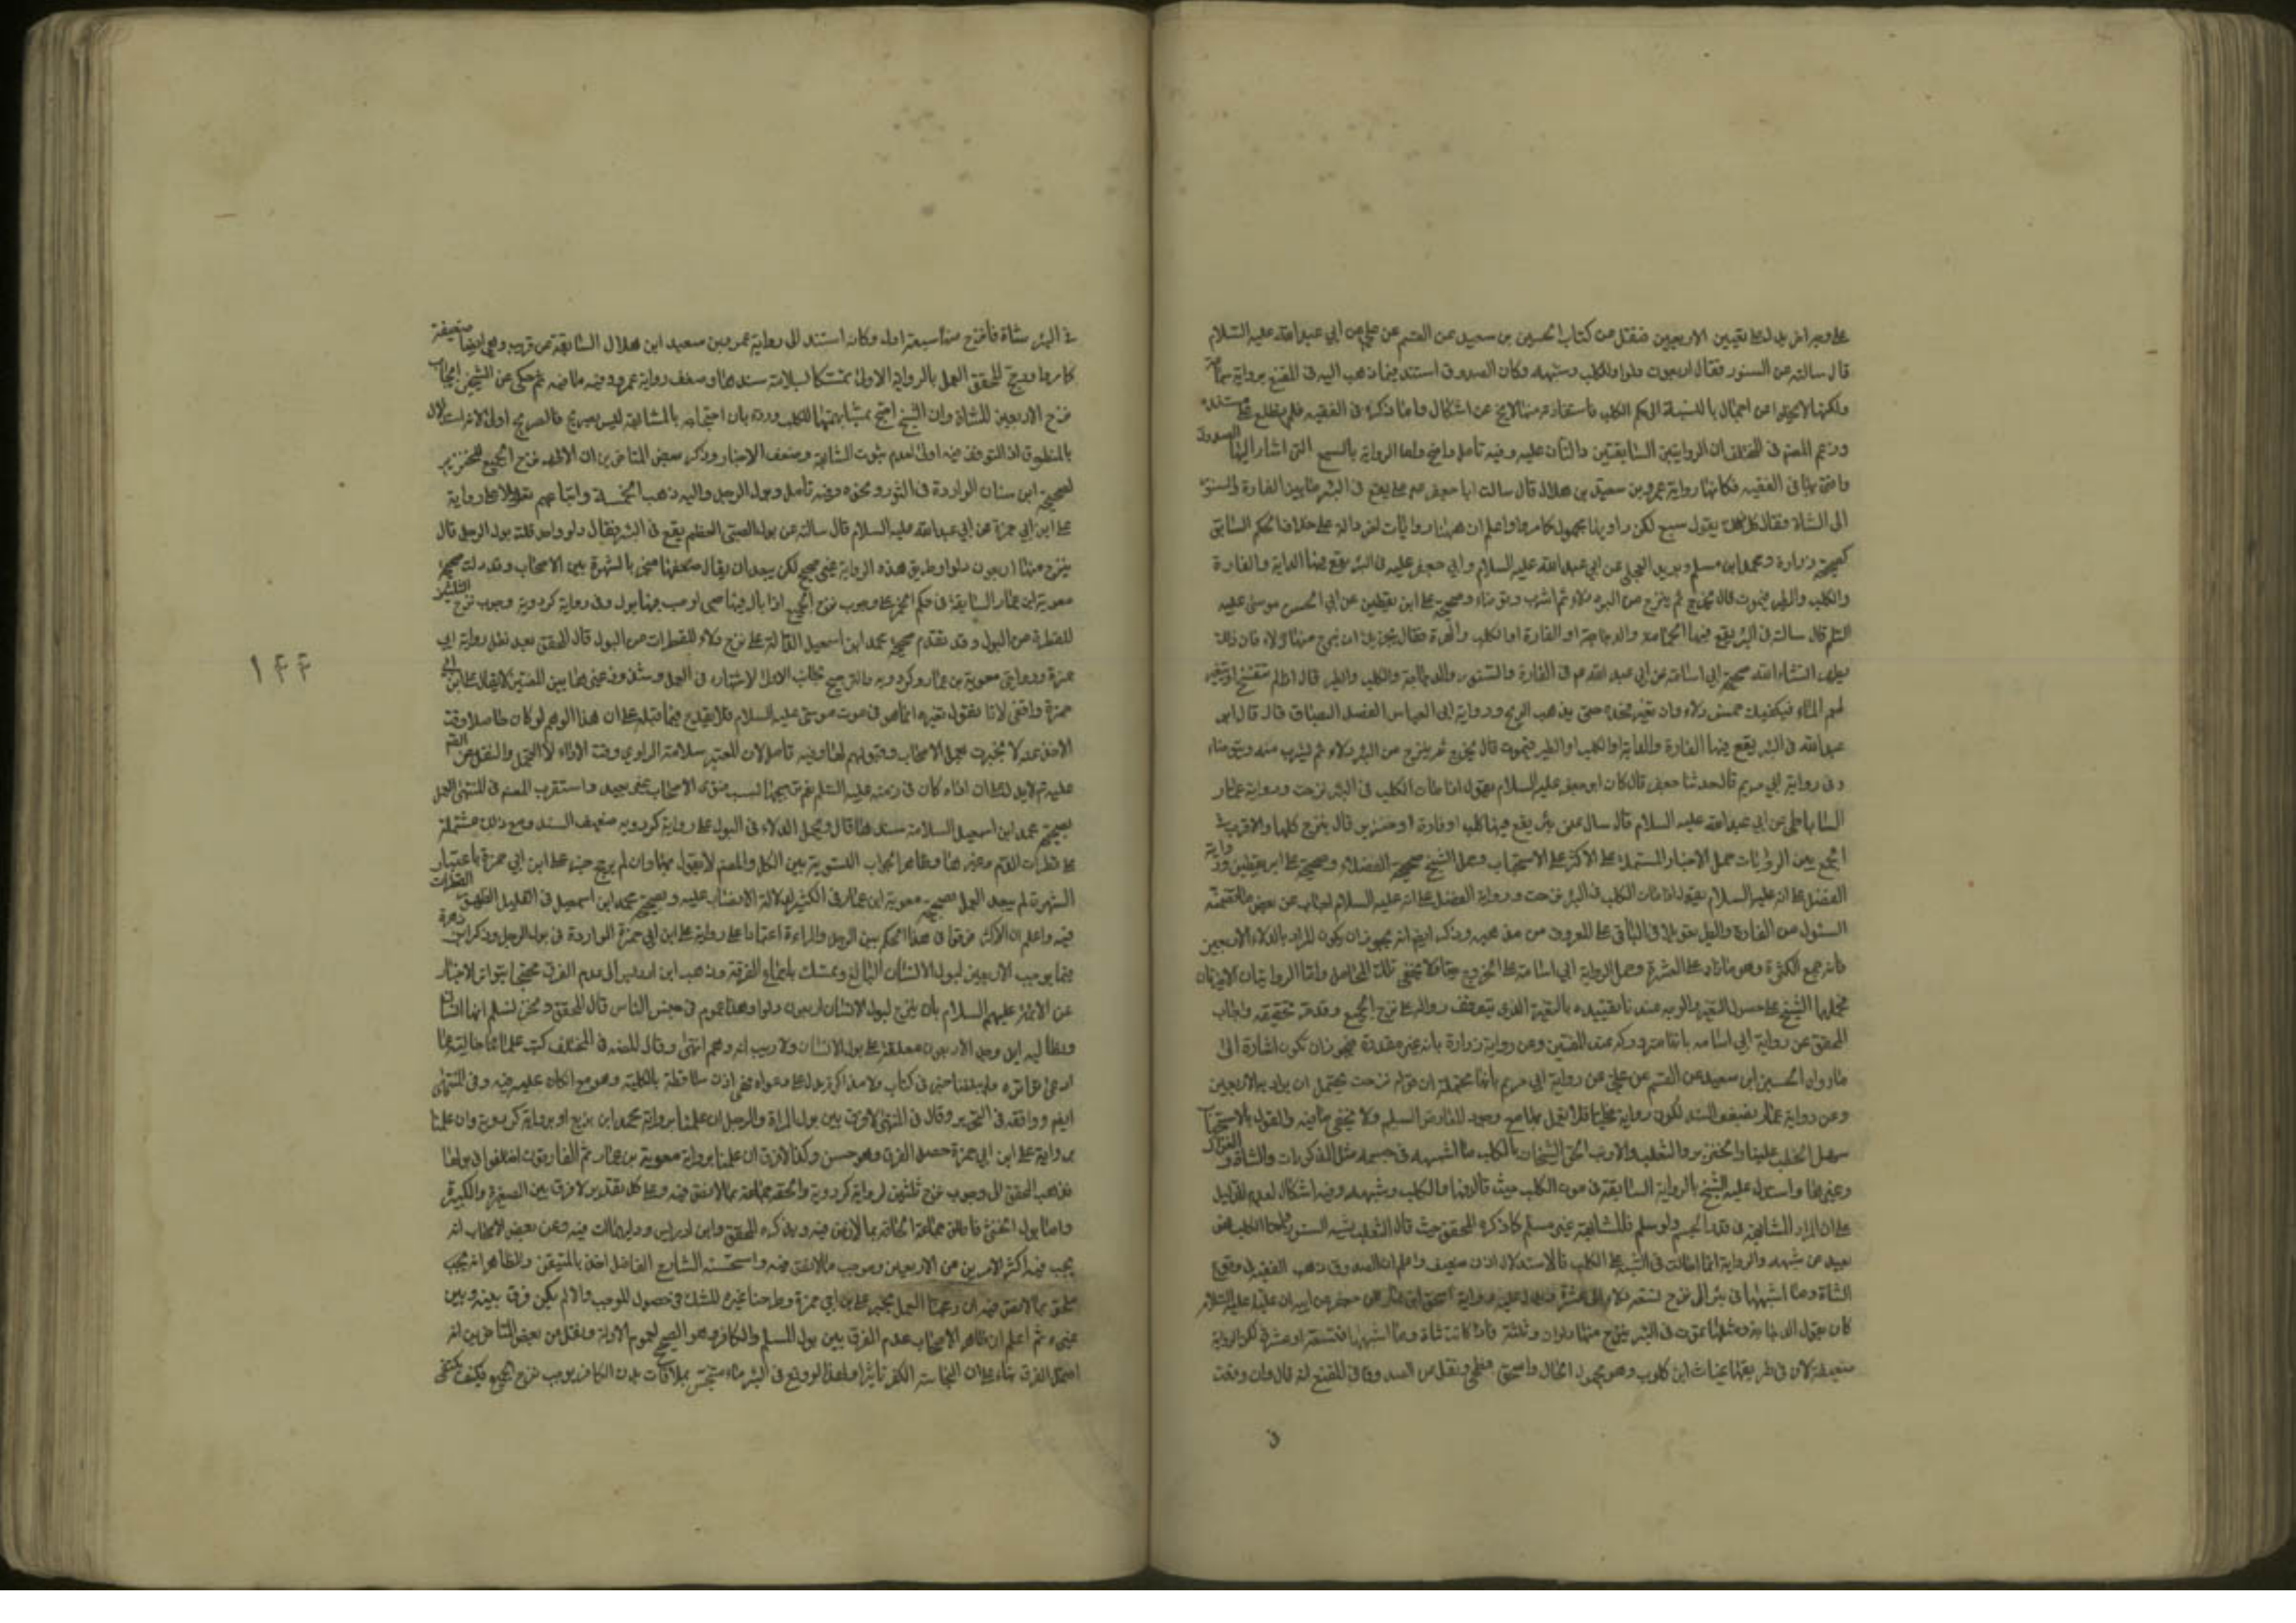 على وجه اخر يدل على تعيين الاربعين فنقل من كتاب الحسين بن سعيد عن القسم عن علي عن ابي عبد الله عليه السلام
قال سالته عن السنور فقال اربعون دلوا وللكلب وشبهه وكان الصدوق استند فيما ذهب اليه في المقنع برواية سماعة
ولكنها لا يخلوا من اجمال بالنسبة الى حكم الكلب فاستفادته منها لا يخ عن اشكال واما ذكره في الفقيه فلم نطلع على مستنده
وزعم المصنف في المختلف ان الروايتين السابقتين دالتان عليه وفيه تامل واضح واما الرواية بالسبع التي اشار اليها الصدوق
وافتى بها في الفقيه فكانها رواية عمرو بن سعيد بن هلال قال سالت ابا جعفر عما يقع في البئر ما بين الفارة والسنور
الى الشاة فقال كل ذلك يقول سبع لكن راويها مجهول كما مر واعلم ان ههنا روايات اخر دالة على خلاف الحكم السابق
كصحيحة زرارة ومحمد ابن مسلم وبريد العجلي عن ابي عبد الله عليه السلام وابي جعفر عليه في البئر يقع فيها الدابة والفارة
والكلب والطير فيموت قال يخرج ثم ينزح من البئر دلاء ثم اشرب وتوضاء وصحيحة علي ابن يقطين عن ابي الحسن موسى عليه
السلم قال سالته في البئر يقع فيها الحمامة والدجاجة او الفارة او الكلب والهرة فقال يجزيك ان ينزح منها دلاء فان ذلك
يطهرها انشاء الله صحيحة ابي اسامة عن ابي عبد الله عم في الفارة والسنور والدجاجة والكلب والطير قال اذا لم يتفسخ او يتغير
طعم الماء فيكفيك خمس دلاء وان تغير فخذه حتى يذهب الريح ورواية ابي العباس الفضل البقباق قال قال ابو
عبد الله في البئر يقع فيها الفارة والدابة او الكلب او الطير فيموت قال يخرج ثم ينزح من البئر دلاء ثم يشرب منه ويتوضاء
وفي رواية ابي مريم قال حدثنا جعفر قال كان ابو جعفر عليه السلام يقول اذا مات الكلب في البئر نزحت ورواية عمار
الساباطي عن ابي عبد الله عليه السلام قال سال عن بئر يقع فيها كلب او فارة او خنزير قال ينزح كلها والاقرب في
الجمع بين الروايات حمل الاخبار المشتملة على الاكثر على الاستحباب وحمل الشيخ صحيحة الفضلاء وصحيحة علي ابن يقطين ورواية
الفضل على انه عليه السلام يقول اذا مات الكلب في البئر نزحت ورواية الفضل على انه عليه السلام اجاب عن بعض ما تضمنه
السئول من الفارة والطير تعويلا في الباقي على المعروف من مذهبه وذكر ايضا انه يجوز ان يكون المراد بالدلاء الاربعين
فانه جمع الكثرة وهو ما زاد على العشرة وحمل الرواية ابي اسامة على الخروج حيا ولا يخفى تلك المحامل واما الروايتان الاخيرتان
فحملهما الشيخ على حصول التغير والوجه عندنا تقييده بالتغير الذي يتوقف زواله على نزح الجميع وقد مر تحقيقه واجاب
المحقق عن رواية ابي اسامة بما تقدم ذكره عند الضعيفين وعن رواية زرارة بانه غير مقدرة فيجوز ان تكون اشارة الى
ما رواه الحسين ابن سعيد عن القسم عن علي عن رواية ابي مريم بانها محتملة ان قوله نزحت يحتمل ان يراد به الاربعين
وعن رواية عمار بضعف السند لكون رواية فطحيا فلا يعمل بها مع وجود المعارض السليم ولا يخفى ما فيه والقول بالاستحباب
سهل الخطب علينا والخنزير والثعلب والارنب الحق الشيخان بالكلب ما اشبهه في جسمه مثل المذكورات والشاة والغزال
وغيرها واستدل عليه الشيخ بالرواية السابقة في موت الكلب حيث قال فيها والكلب وشبهه وفيه اشكال لعدم الدليل
على ان المراد المشابهة في قدر الجسم ولو سلم فالمشابهة غير مسلم كما ذكره المحقق حيث قال الثعلب يشبه السنور واما الكلب فهو
بعيد عن شبهه والرواية انما احالت في الشبه على الكلب فالاستدلال اذن ضعيف واعلم ان الصدوق ذهب الفقيه في وقوع
الشاة وما اشبهها في بئر الى نزح تسعة دلاء الى عشرة ويدل عليه رواية اسحق ابن عمار عن جعفر عن ابيه ان عليا عليه السلام
كان يقول الدجاجة ومثلها يموت في البئر ينزح منها دلوان وثلثة واذا كانت شاة وما اشبهها فتسعة او عشرة لكن الرواية
ضعيفة لان في طريقها غياث ابن كلوب وهو مجهول الحال واسحق فطحي ونقل من الصدوق في المقنع انه قال وان وقعت
في
في البئر شاة فانزح منها سبعة ادلو وكانه استند الى رواية عمرو بن سعيد ابن هلال السابقة عن قريب وهي ايضا ضعيفة
كما مر ورجح المحقق العمل بالرواية الاولى متمسكا بسلامة سندها وضعف رواية عمرو وفيه ما فيه ثم حكى عن الشيخين ايجاب
نزح الاربعين للشاة وان الشيخ احتج بمشابهتها للكلب ورده بان احتجاجه بالمشابهة ليس بصريح فالصريح اولى لانه استدلال
بالمنطوق اذ التوقف فيه اولى لعدم ثبوت المشابهة وضعف الاخبار وذكر بعض المتاخرين ان الاظهر نزح الجميع للخنزير
لصحيحة ابن سنان الواردة في الثور ونحوه وفيه تامل وبول الرجل واليه ذهب الخمسة واتباعهم تعويلا على رواية
علي ابن ابي حمزة عن ابي عبد الله عليه السلام قال سالته عن بول الصبي الفطيم يقع في البئر فقال دلو واحد قلت بول الرجل قال
ينزح منها اربعون دلوا وطريق هذه الرواية غير صحيح لكن يبعد ان يقال ضعفها منجبر بالشهرة بين الاصحاب وقد دلت صحيحة
معوية ابن عمار السابقة في حكم الخمر على وجوب نزح الجميع اذا بال فيها صبي او صب فيها بول وفي رواية كردويه وجوب نزح الثلثين
للقطرة من البول وقد تقدم صحيحة محمد ابن اسمعيل الدالة على نزح دلاء للقطرات من البول قال المحقق بعد نقل رواية ابي
حمزة وروايتي معوية بن عمار وكردويه والترجيح لجانب الاولى لاشتهارها في العمل وشذوذ غيرها بين المفتين لا يقال علي ابن ابي
حمزة واقفي لانا نقول تغيره انما هو في موت موسى عليه السلام فلا يقدح فيما قبله على ان هذا الوهم لو كان حاصلا وقت
الاخذ عنه لا نجبرت بعمل الاصحاب وقبولهم لها وفيه تامل لان المعتبر سلامة الراوي وقت الاداء لا التحمل والنقل عن القسم
عليه ثم لا يدل على ان اداء كان في زمنه عليه السلم فترجيحها بسبب فتوى الاصحاب غير بعيد واستقرب المصنف في المنتهى العمل
بصحيحة محمد ابن اسمعيل السلامة سندها قال ويحمل الدلاء في البول على رواية كردويه ضعيف السند ومع ذلك مشتملة
على قطرات الدم وغيرها وظاهر ايجاب التسوية بين الكل والمصنف لا يقول بها وان لم يرجح خبر علي ابن ابي حمزة باعتبار
الشهرة لم يبعد العمل بصحيحة معوية ابن عمار في الكثير لدلالة الانصباب عليه وبصحيحة محمد ابن اسمعيل في القليل القطرات
فيه واعلم ان الاكثر فرقوا في هذا الحكم بين الرجل والمراة اعتمادا على رواية علي ابن ابي حمزة الواردة في بول الرجل وذكر ابن زهرة
فيما يوجب الاربعين لبول الانسان البالغ وتمسك باجماع الفرقة وذهب ابن ادريس الى عدم الفرق محتجا بتواتر الاخبار
عن الائمة عليهم السلام بان ينزح لبول الانسان اربعون دلوا وهذا عموم في جنس الناس قال المحقق ونحن نسلم انها انسان
ونطالبه اين وجد الاربعون معلقة على بول الانسان ولا ريب انه وهم انتهى وقال المصنف في المختلف كتب علمائنا خالية عما
ادعى تواتره ولم يبلغنا خبر في كتاب ولا مذاكرة يدل على دعواه فهي اذن ساقطة بالكلية وهو مع انكان عليه فيه وفي المنتهى
ايضم ووافقه في التحرير وقال في المنتهى لا فرق بين بول المراة والرجل ان عملنا برواية محمد ابن بزيع او برواية كردويه وان عملنا
برواية علي ابن ابي حمزة حصل الفرق وهو حسن وكذا لا فرق ان عملنا برواية معوية بن عمار ثم الفارقون اختلفوا في بولها
فذهب المحقق الى وجوب نزح ثلثين لرواية كردويه والحقه جماعة بما لا نص فيه وعلى كل تقدير لا فرق بين الصغيرة والكبيرة
واما بول الخنثى فاطلق جماعة الحاقه بما لا نص فيه ولم يذكره المحقق وابن ادريس وعن بعض الاصحاب انه
يجب فيه اكثر الامرين من الاربعين وموجب ما لا نص فيه واستحسنه الشارح الفاضل اخذا بالمتيقن والظاهر انه يجب
ملحق بما لا نص فيه ان رجحنا العمل بخبر علي بن ابي حمزة وطرحنا غيره للشك في حصول الموجب والا لم يكن فرق بينه وبين
غيره ثم اعلم ان ظاهر الاصحاب عدم الفرق بين بول المسلم والكافر وهو الصحيح لعموم الادلة ونقل من بعض المتاخرين انه
احتمل الفرق بناء على ان لنجاسة الكفر تاثيرا ولهذا لو وقع في البئر ماء متنجس بملاقات بدن الكافر يوجب نزح الجميع فكيف يكتفى
١٤٤